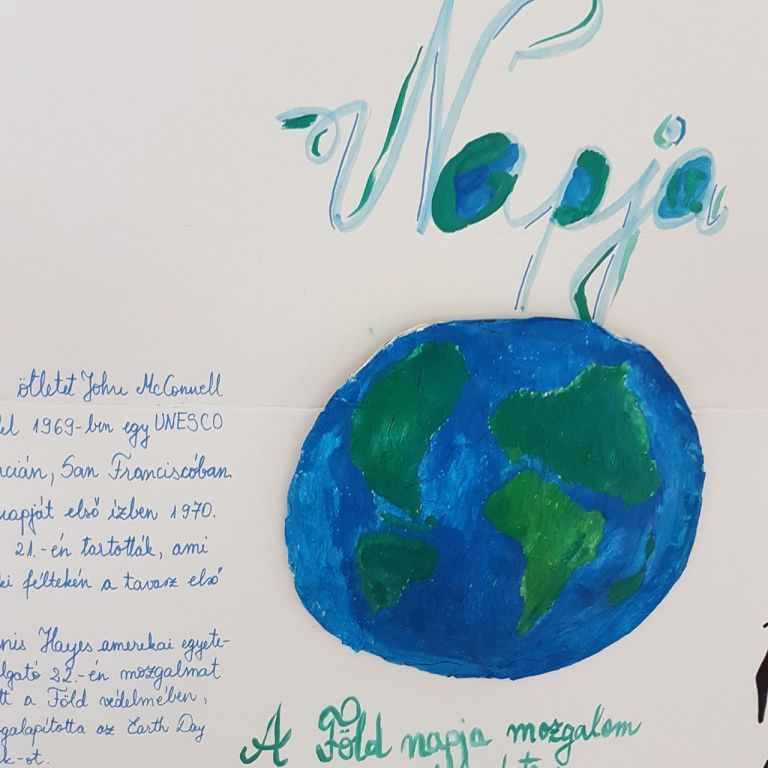 Napja
ötletet John McConnell
1969-ben egy UNESCO
San Franciscóban
napját első ízben 1970.
21.-én tartották, ami
féltekén a tavasz első
Hayes amerikai egyete-
22.-én mozgalmat
a Föld védelmében,
az Earth Day
A Föld napja mozgalom